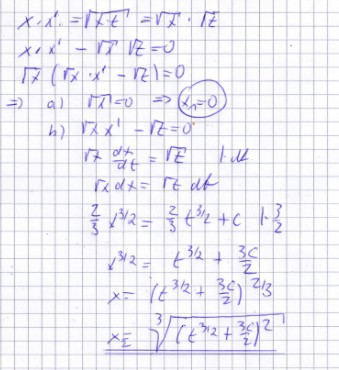 x·x' = √(x·t) = √x · √t
x·x' - √x √t = 0
√x (√x · x' - √t) = 0
=> a) √x = 0 => x₁ = 0
b) √x x' - √t = 0
√x dx/dt = √t |·dt
√x dx = √t dt
2/3 x^3/2 = 2/3 t^3/2 + c |·3/2
x^3/2 = t^3/2 + 3c/2
x = (t^3/2 + 3c/2)^2/3
x_II = ∛((t^3/2 + 3c/2)²)